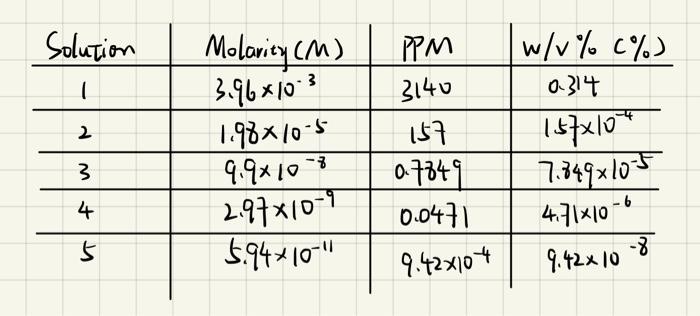 Solution Molarity (M) PPM w/v% (%)
1 3.96×10⁻³ 3140 0.314
2 1.98×10⁻⁵ 157 1.57×10⁻⁴
3 9.9×10⁻⁸ 0.7849 7.849×10⁻⁵
4 2.97×10⁻⁹ 0.0471 4.71×10⁻⁶
5 5.94×10⁻¹¹ 9.42×10⁻⁴ 9.42×10⁻⁸